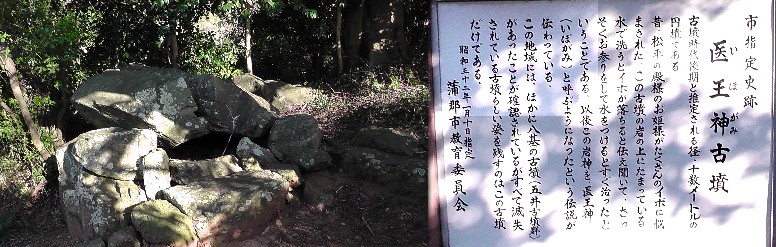 市指定史跡
医王神古墳
いぼがみ
古墳時代後期と推定される径一十数メートルの
円墳である
昔、松平の殿様のお姫様がたくさんのイボに悩
まされた、この古墳の岩の上にたまっている
水で洗うとイボが落ちると伝え聞いて、さっ
そくお参りをして水をつけるとすぐ治ったと
いうことである。以後この岩神を医王神
(いぼがみ)と呼ぶようになったという伝説が
伝わっている。
この地域には、ほかに八基の古墳(五井古墳群)
があったことが確認されているがすべて滅失
されている古墳らしい姿を残すのはこの古墳
だけである。
昭和三十二年一月十日指定
蒲郡市教育委員会